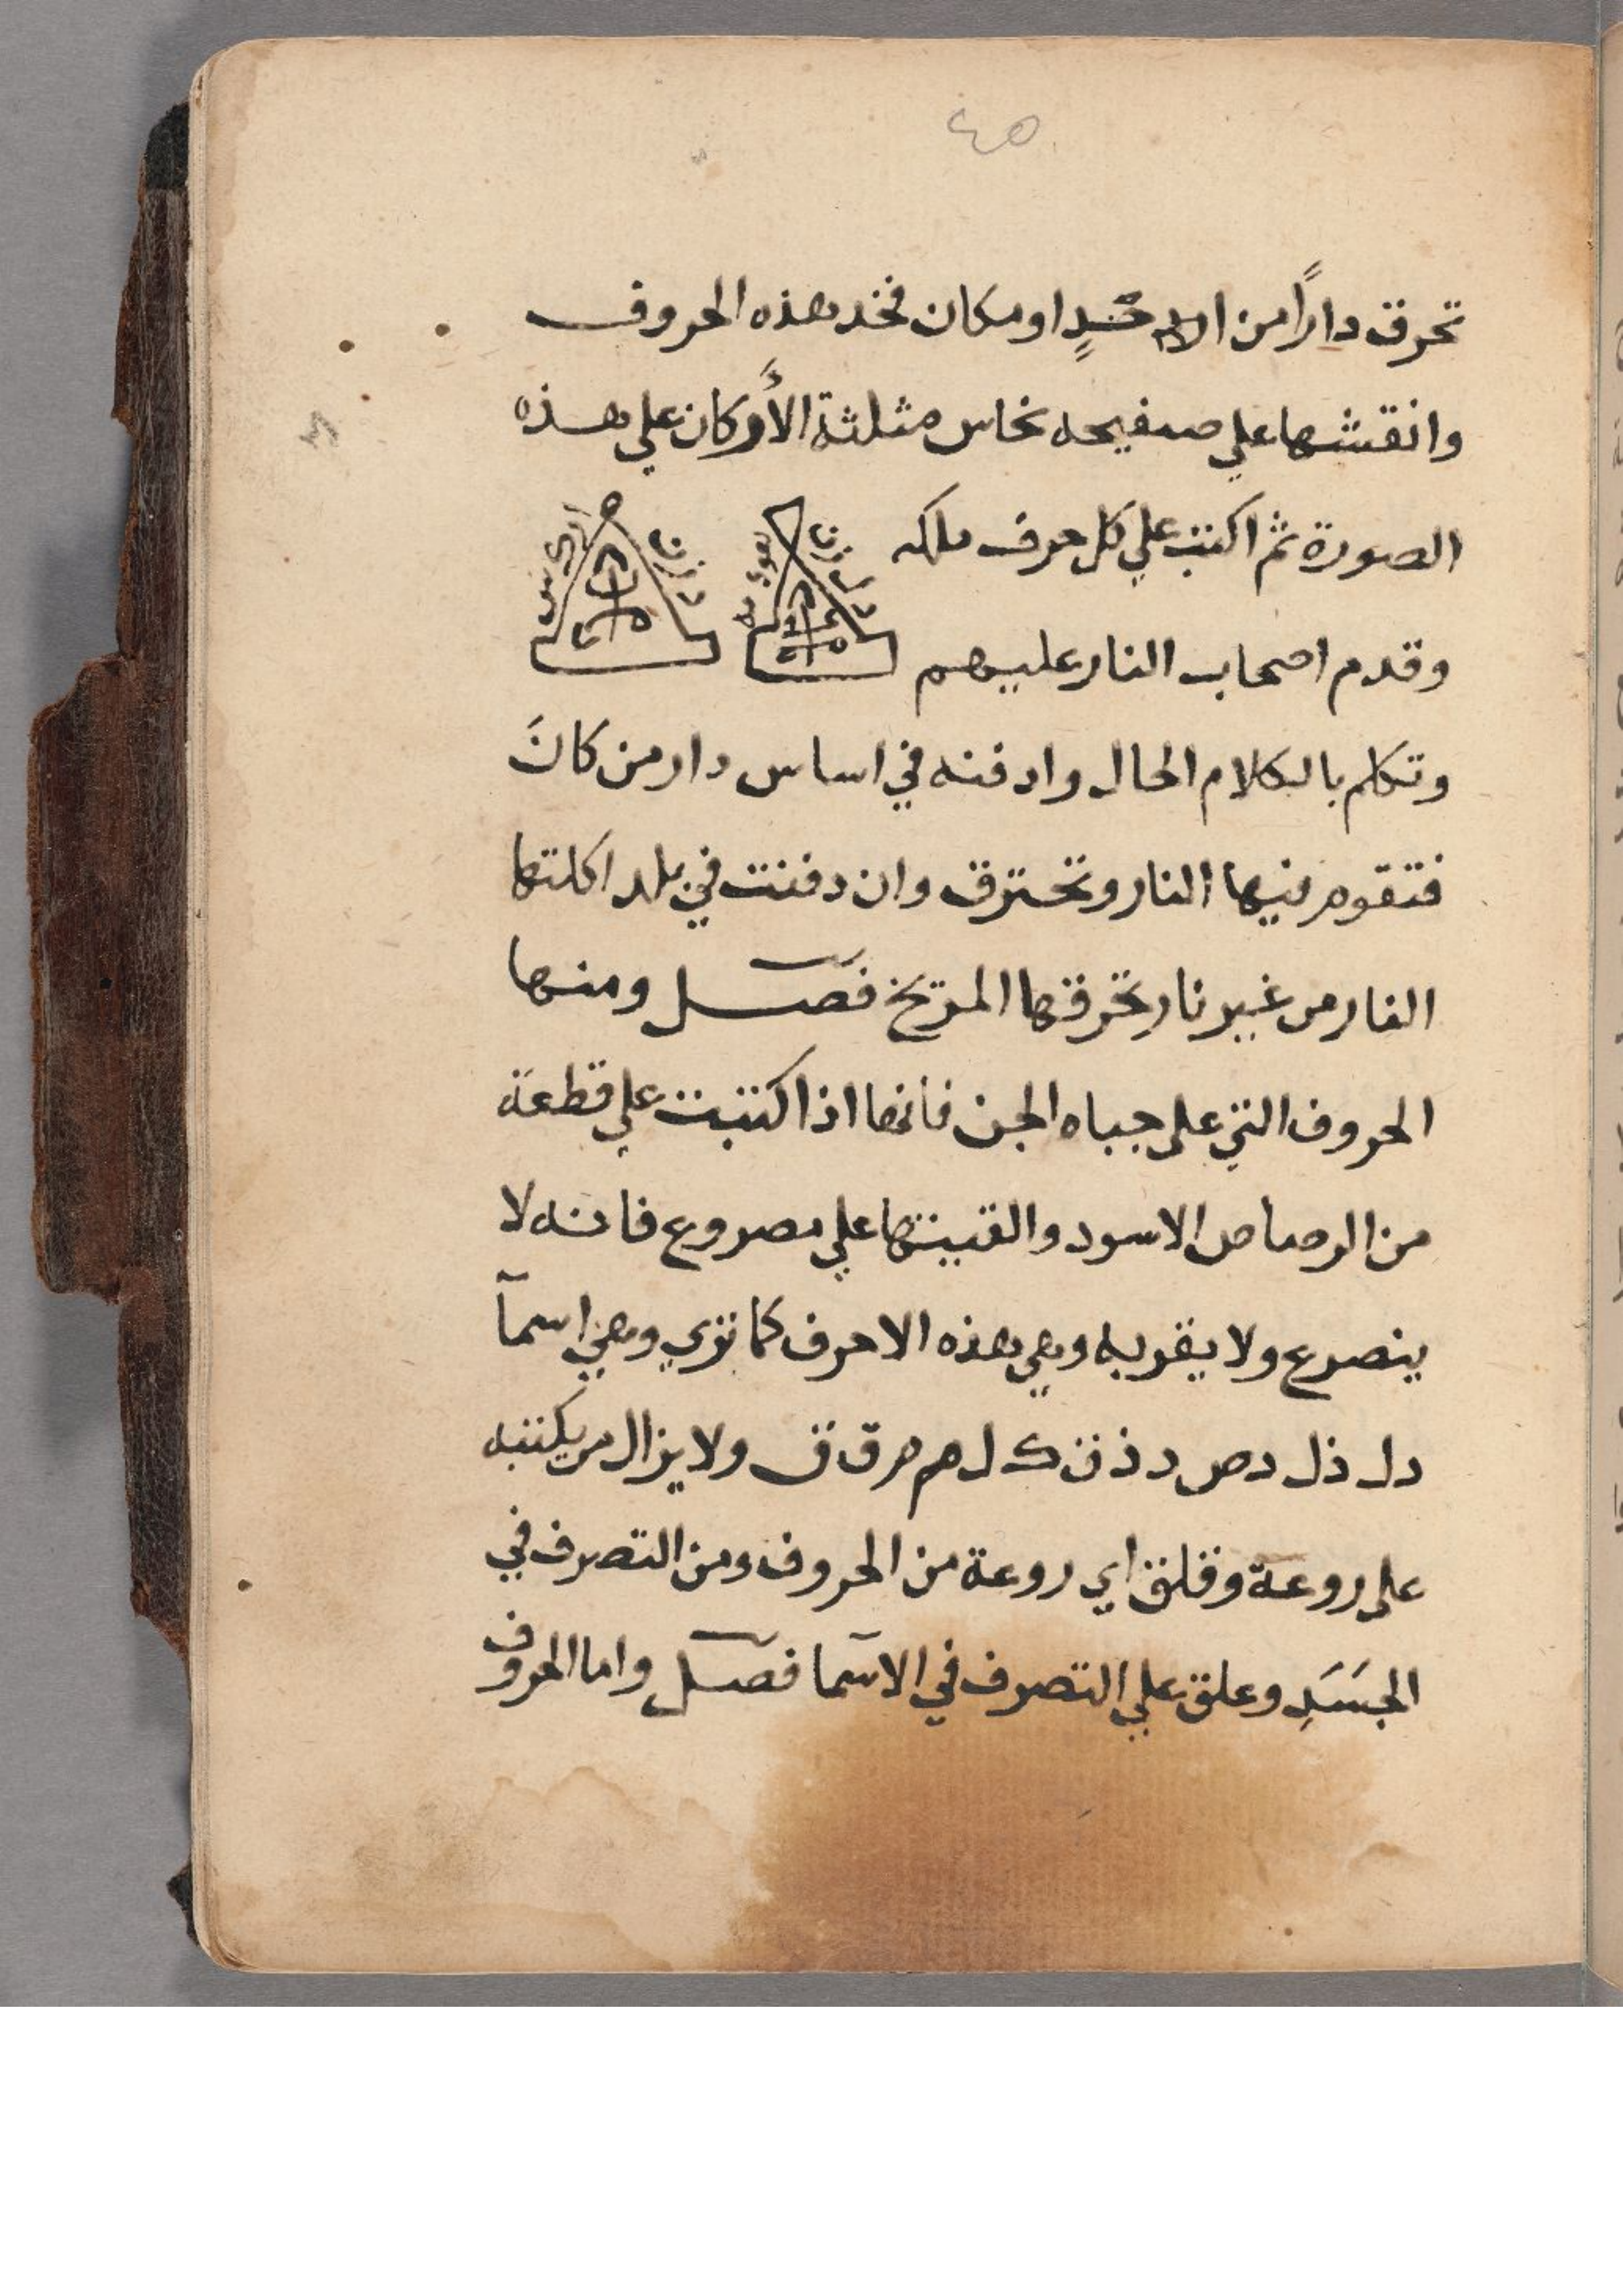 ٤٥
تحرق داراً من او مكان فخد هذه الحروف
وانقشها علي صفيحه نحاس مثلثة الأركان علي هذه
الصورة ثم اكتب علي كل حرف ملكه
وقدم اصحاب النار عليهم
وتكلم بالكلام الحال وادفنه في اساس دار من كانَ
فتقوم فيها النار وتحترق وان دفنت في بلد اكلتها
النار من غير نار تحرقها المريخ فصل ومنها
الحروف التي على جباه الجن فانها اذا كتبت علي قطعة
من الرصاص الاسود والقيتها علي مصروع فانه لا
ينصرع ولا يقربه وهي هذه الاحرف كما تري وهي اسمآ
دل ذل دص د ذ ن ك ل هم هر ق ق ولا يزال من يكتبه
على روعة وقلق اي روعة من الحروف ومن التصرف في
الجسَدِ وعلق علي التصرف في الاسما فصل واما الحروف